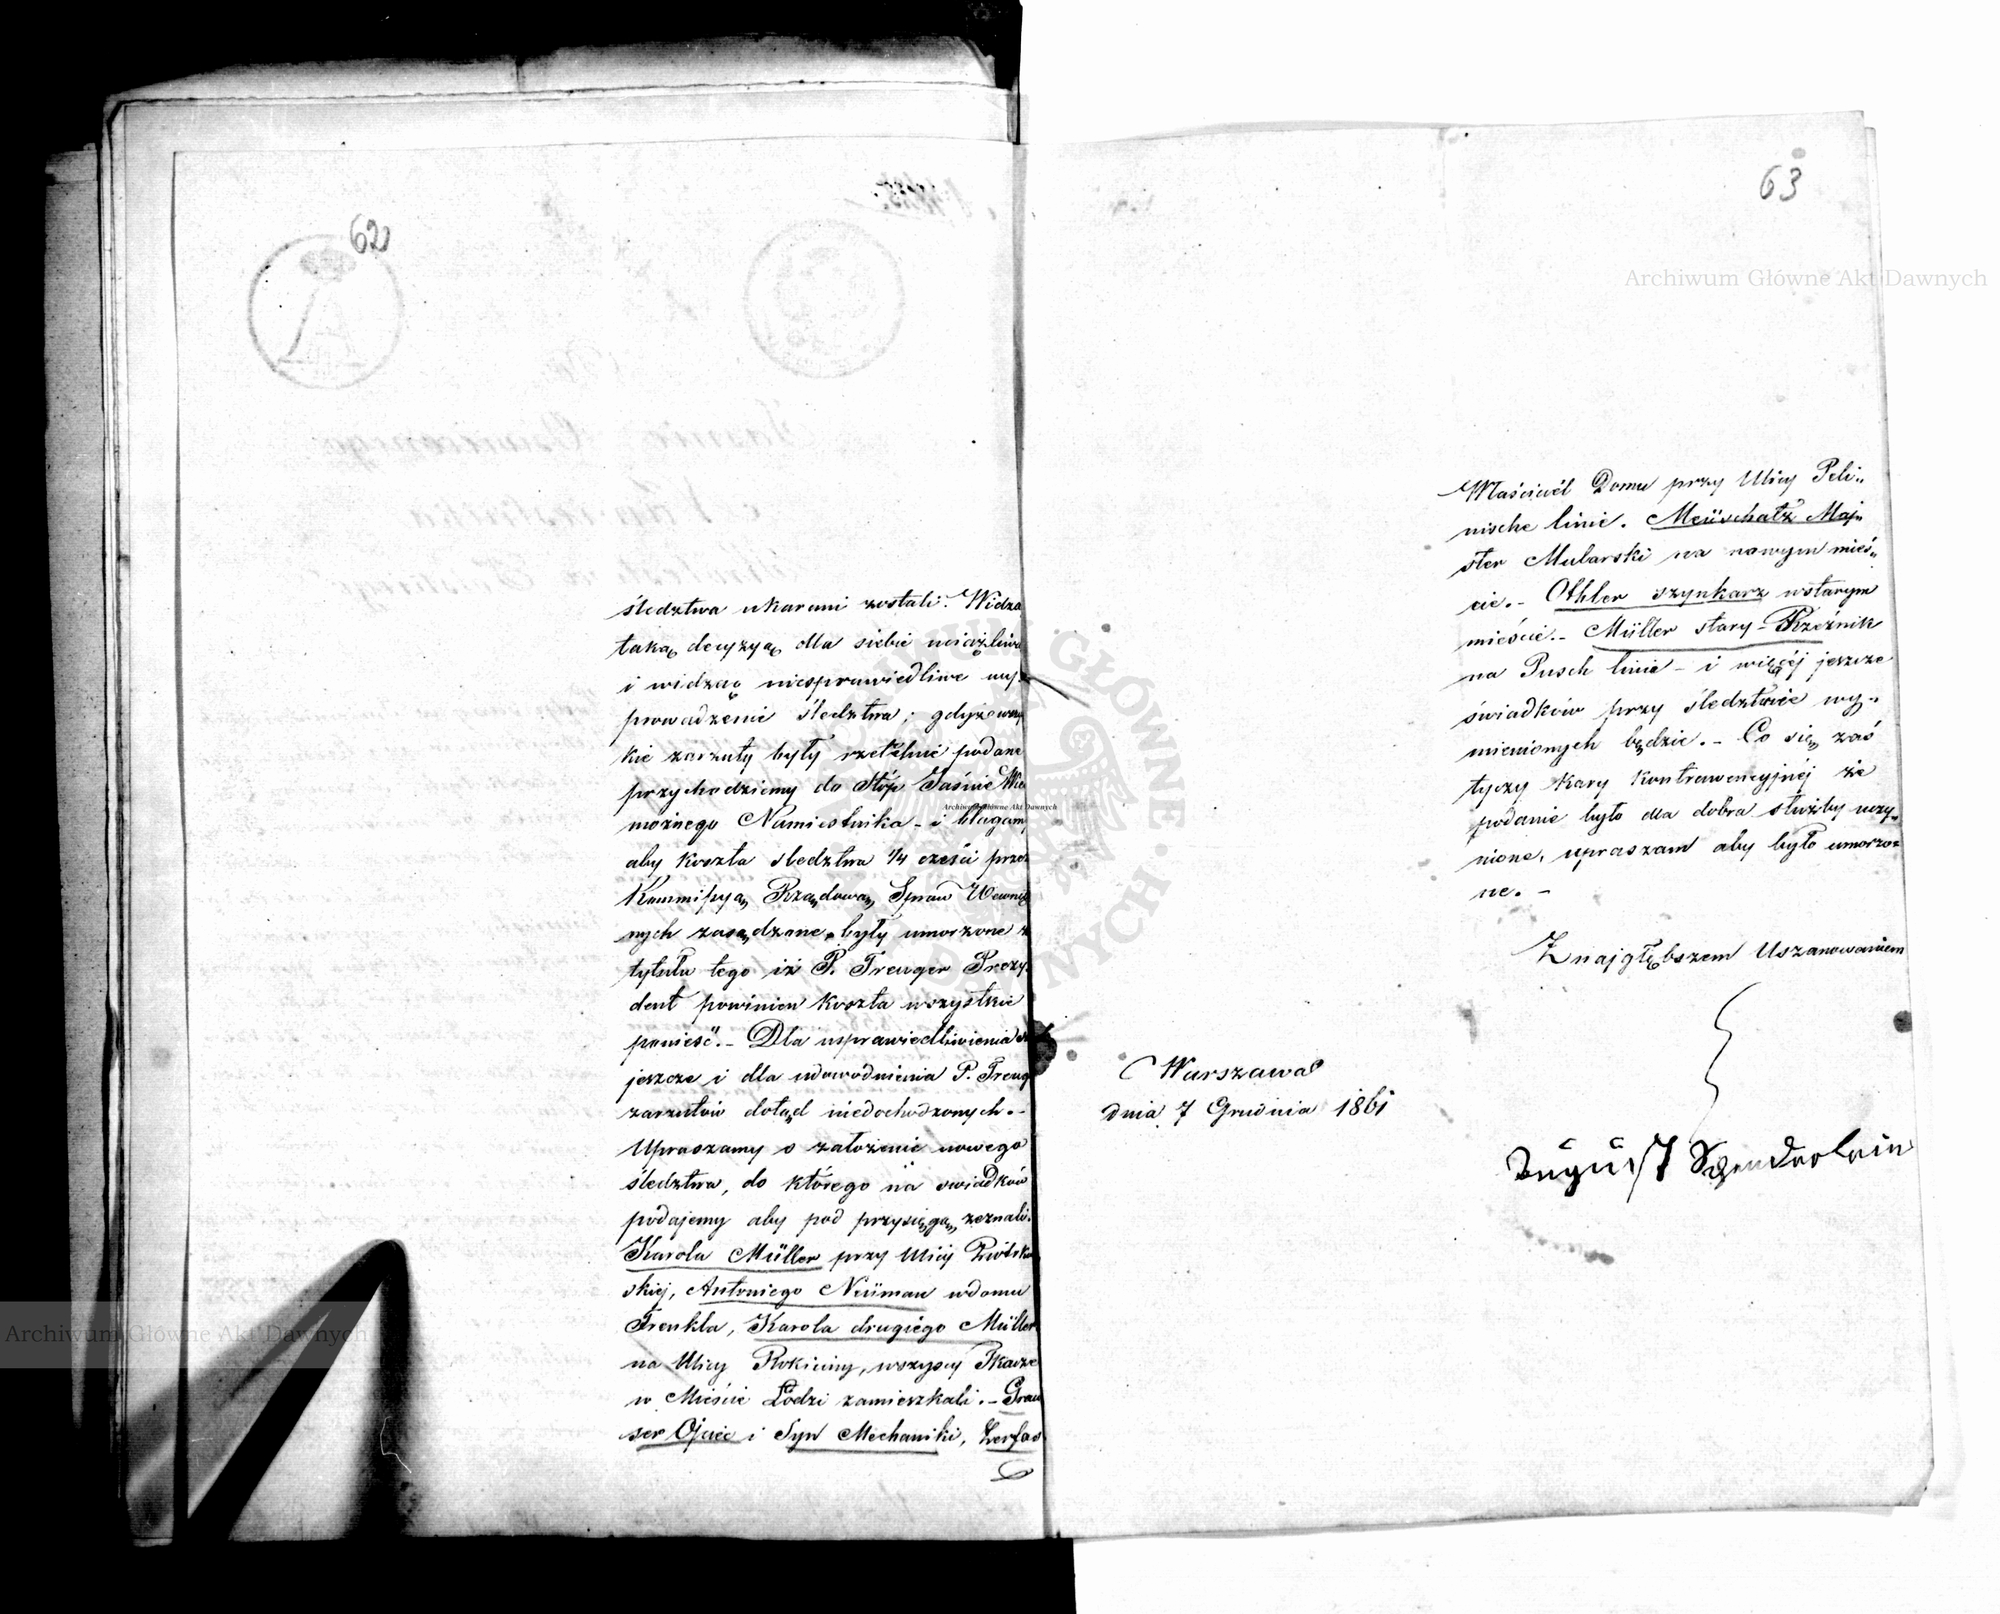 62
śledztwa ukarani zostali. Widzą
taką decyzyą dla siebie uciążliwą
i widząc niesprawiedliwe wy-
prowadzenie śledztwa; gdyż wszy
kie zarzuty były rzetelnie podane
przychodziemy do Stóp Jaśnie Wie
możnego Namiestnika - i błagamy
aby koszta śledztwa 1/4 cześci przez
Kommissyą Rządową Spraw Wewnę
nych zasądzone, były umorzone z
tytułu tego iż P. Treuger Prezy-
dent powinien koszta wszystkie
ponieść. - Dla usprawiedliwienia
jeszcze i dla udowodnienia P. Treug
zarzutów dotąd niedochodzonych. -
Upraszamy o założenie nowego
śledztwa, do którego na swiadków
podajemy aby pod przysięgą zeznali.
Karola Müller przy Ulicy
skiej, Antoniego Neüman wdomu
Frenkla, Karola drugiego Müller
na Ulicy Rokiciny, wszyscy Tkacze
w Mieście Łodzi zamieszkali. - Grau
ser Ojciec i Syn Mechaniki, Zerfas
63
Właściciel Domu przy Ulicy Peli-
nische linie. Meüschatz Maj-
ster Mularski na nowym mieś-
cie. - Othler szynkarz wstarym
mieście. - Müller stary - Rzeźnik
na Pusch linie - i więcéj jeszcze
świadków przy śledztwie wy-
mienionych będzie. - Co się zaś
tyczy Kary Kontrawencyjnéj że
podanie było dla dobra służby uczy-
nione, upraszam aby było umorzo-
ne. -
Znajgłębszem Uszanowaniem
Warszawa
dnia 7 Grudnia 1861
August
Archiwum Główne Akt Dawnych
Archiwum Główne Akt Dawnych
Archiwum Główne Akt Dawnych